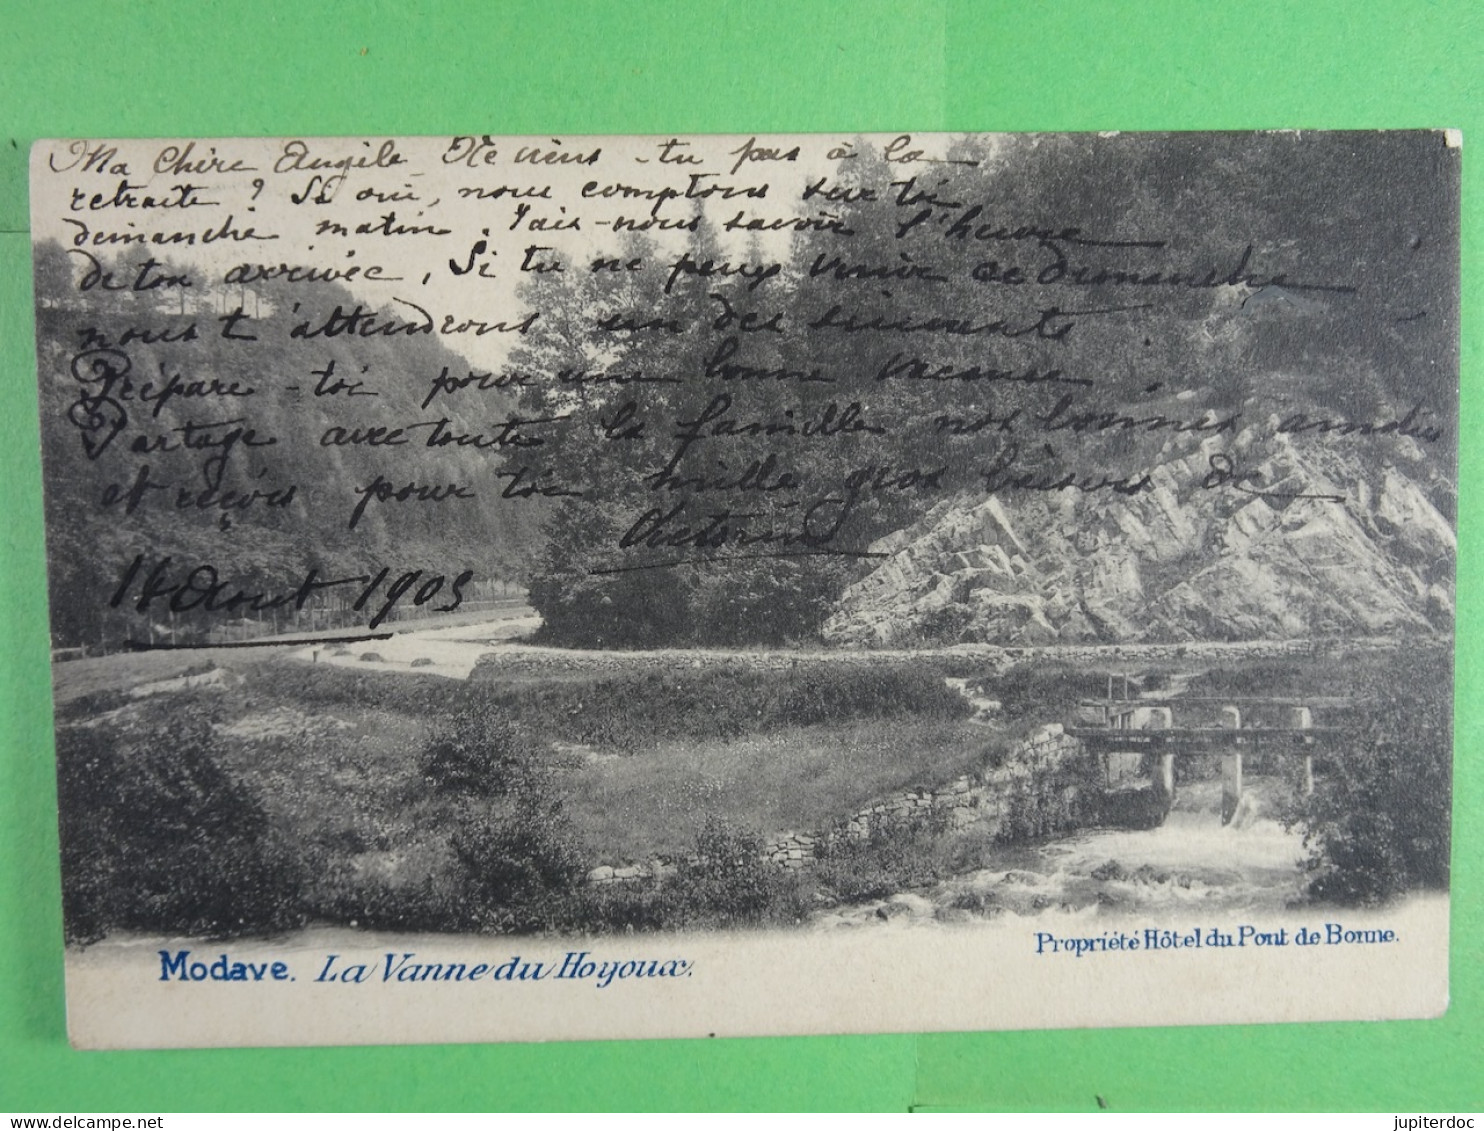 Ma Chère Angèle Ne viens-tu pas à la
retraite ? Si oui, nous comptons sur toi
dimanche matin. Fais-nous savoir l'heure
de ton arrivée, Si tu ne peux venir ce dimanche
nous t'attendrons un des suivants
Prépare-toi pour une bonne vacance.
Partage avec toute la famille nos bonnes amitiés
et reçois pour toi mille gros baisers de
Victorine
14 Août 1903
Modave. La Vanne du Hoyoux.
Propriété Hôtel du Pont de Bonne.
delcampe.net
jupiterdoc